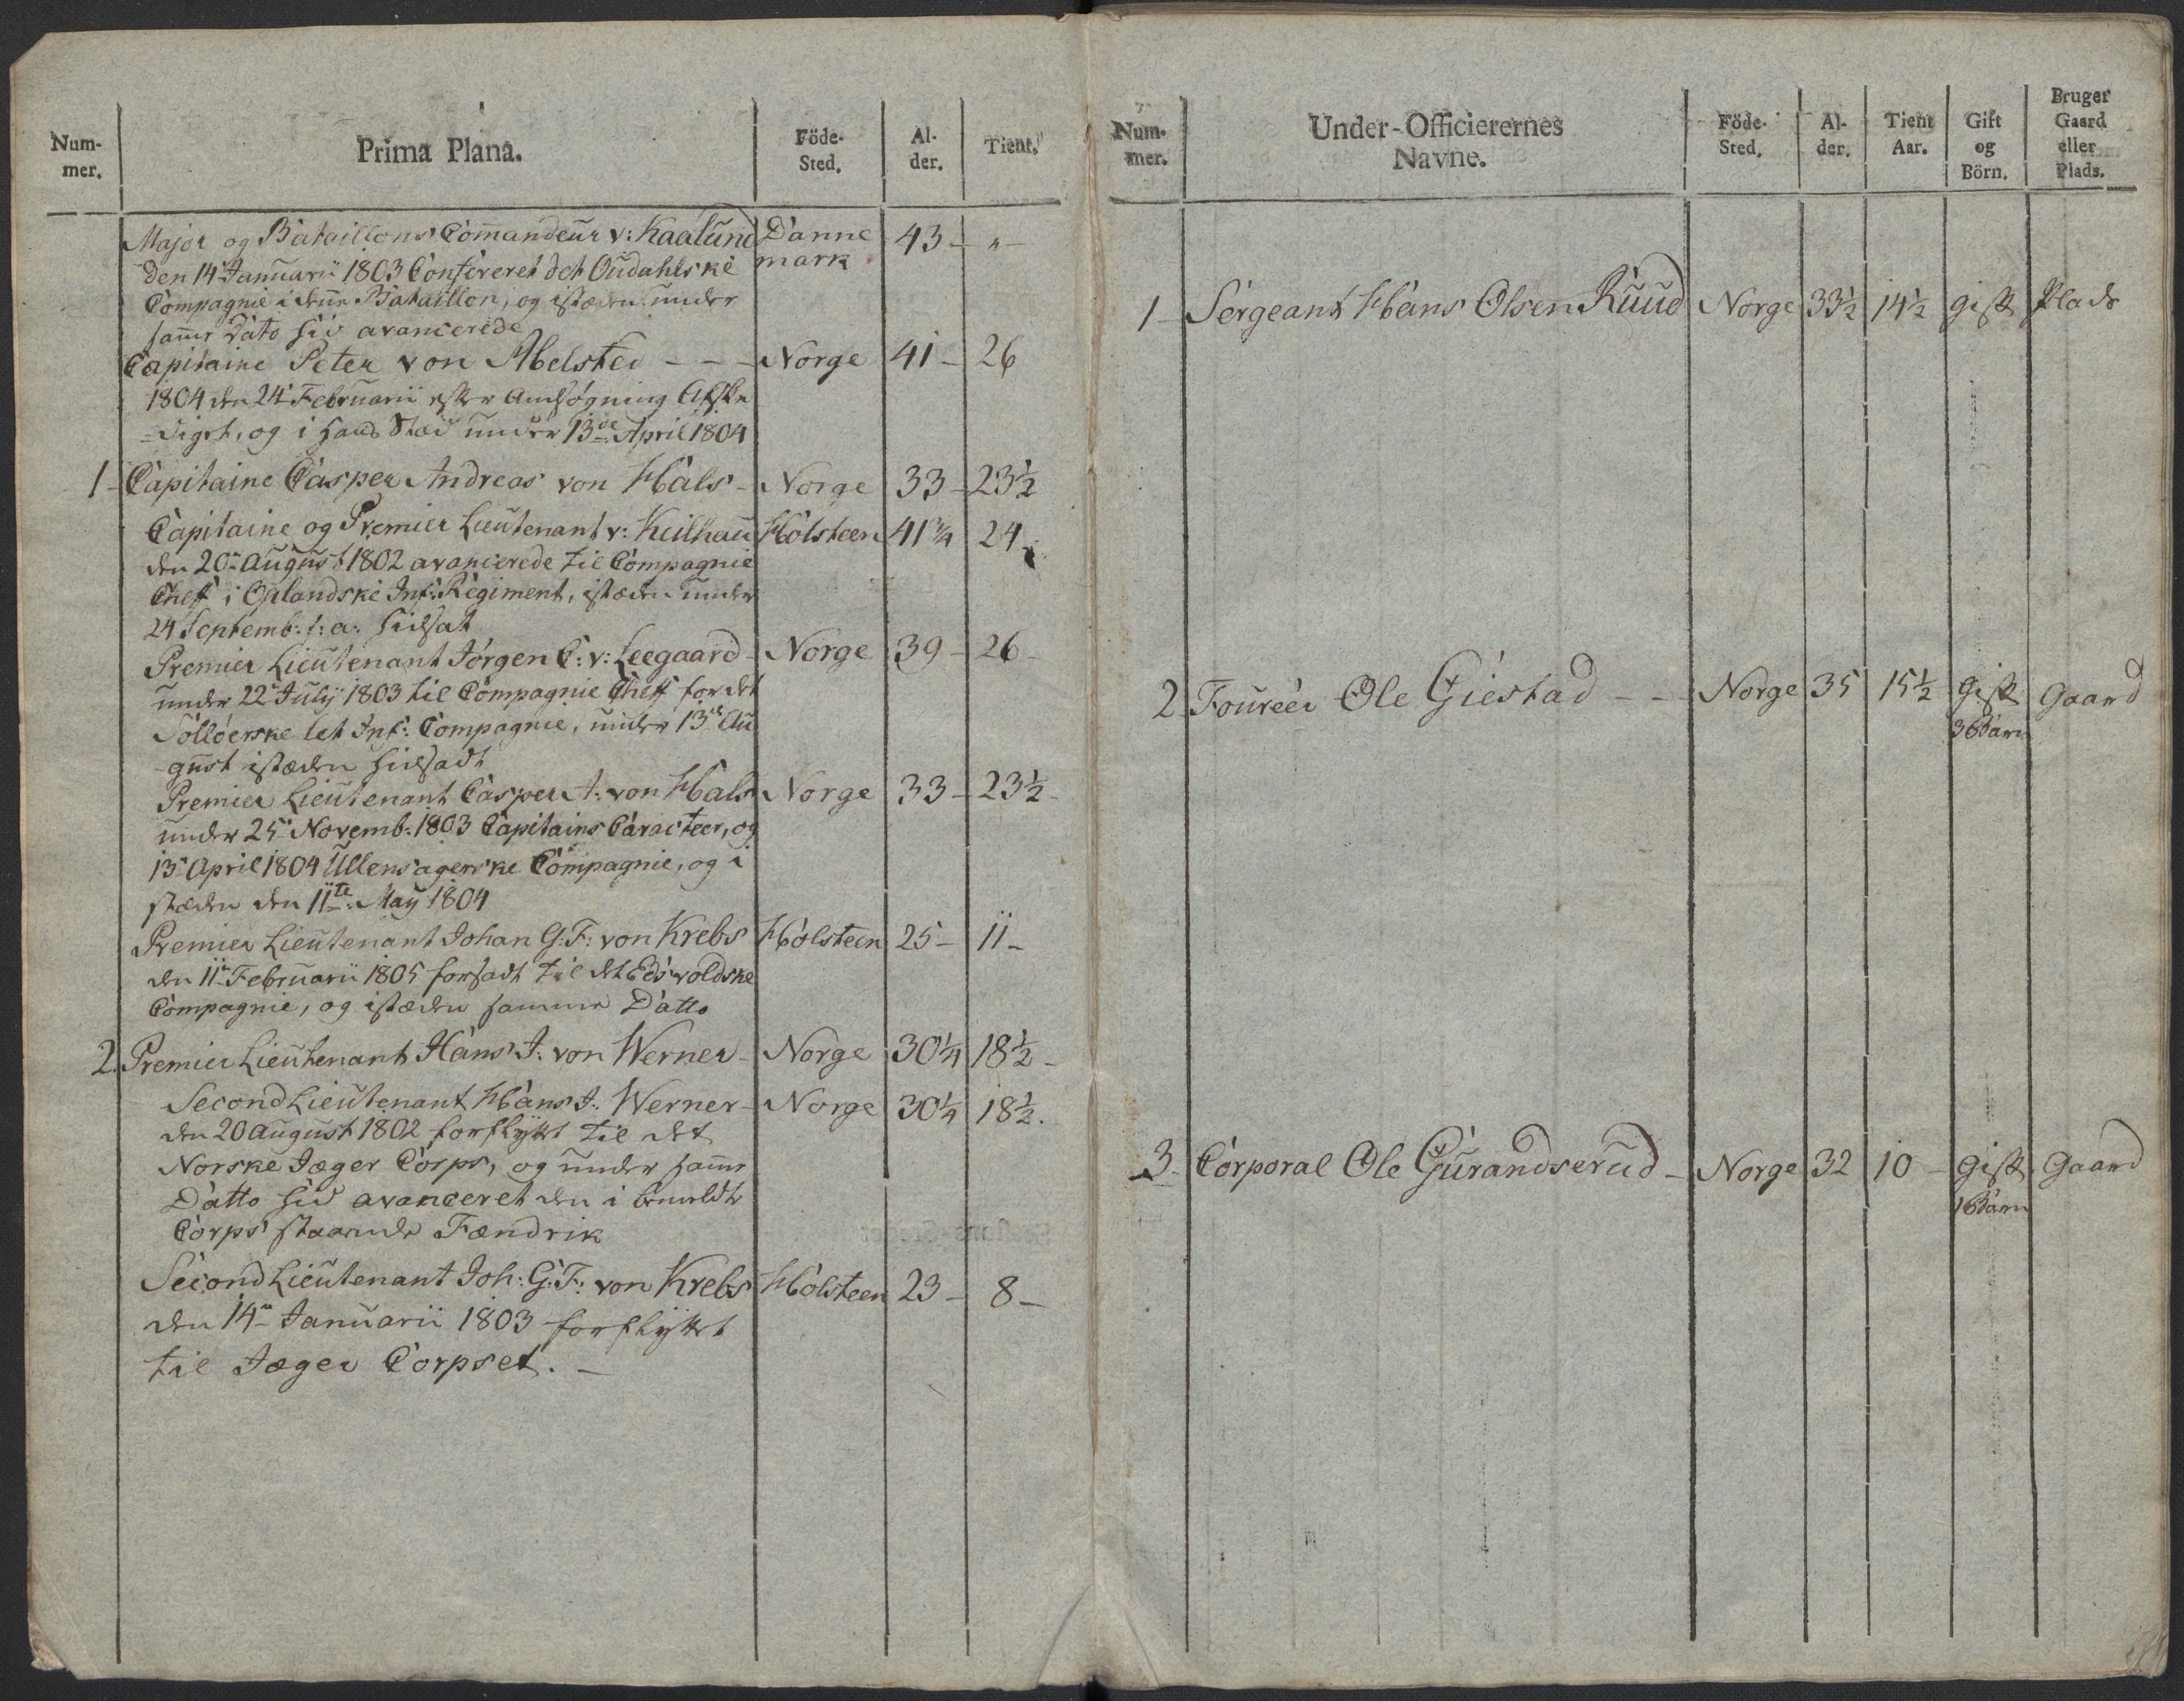 Num-
mer.
Prima Plana.
Föde-
Sted.
Al-
der.
Tient.
Major og Batallions Com̄andeur v: Kaalund Danne 43 - " -
den 14 Januarii 1803 Confereret det Oudahlske mark
Compagnie i denne Bataillon, og istæden under
sam̄e Dato hid avancerede
Capitaine Peter von Abelsted - - - Norge 41 - 26
1804 den 24 Februarii efter Ansøgning Afske
diget, og i hans Stæd under 13de April 1804
1 - Capitaine Casper Andreas von Hals - Norge 33 - 23½
Capitaine og Premier Lieutenant v: Keilhau Holsteen 41¾ 24 -
den 20 August 1802 avancerede til Compagnie
Cheff i Oplandske Inf: Regiment, istæden under
24 Septemb: s: a: hidsat
Premier Lieutenant Jörgen C: v: Leegaard - Norge 39 - 26 -
under 22 July 1803 til Compagnie Cheff for det
Sollöerske let Inf: Compagnie, under 13de Au
gust istæden hidsadt
Premier Lieutenant Casper A: von Hals Norge 33 - 23½ -
under 25 Novemb: 1803 Capitains Caracteer, og
13 April 1804 Ullensagerske Compagnie, og i
stæden den 11te May 1804
Premier Lieutenant Johan G: F: von Krebs Holsteen 25 - 11 -
den 11 Februarii 1805 forsadt til det Edsvoldske
Compagnie, og istæden samme Datto
2. Premier Lieutenant Hans J: von Werner - Norge 30¼ 18½ -
Second Lieutenant Hans J: Werner - Norge 30¼ 18½.
den 20 August 1802 forflyttet til det
Norske Jæger Corps, og under sam̄e
Datto hid avanceret den i bemeldte
Corps staaende Fændrik
Second Lieutenant Joh: G: F: von Krebs Holsteen 23 - 8 -
den 14 Januarii 1803 forflyttet
til Jæger Corpset. -
Num-
mer.
Under-Officierernes
Navne.
Föde-
Sted.
Al-
der.
Tient
Aar.
Gift
og
Börn.
Bruger
Gaard
eller
Plads.
1 - Sergeant Hans Olsen Ruud Norge 33½ 14½ gift Plads
2 - Foureer Ole Giestad - - Norge 35 15½ Gift Gaard
3 Barn
3 - Corporal Ole Gurandserud - Norge 32 10 - Gift Gaard
1 Barn